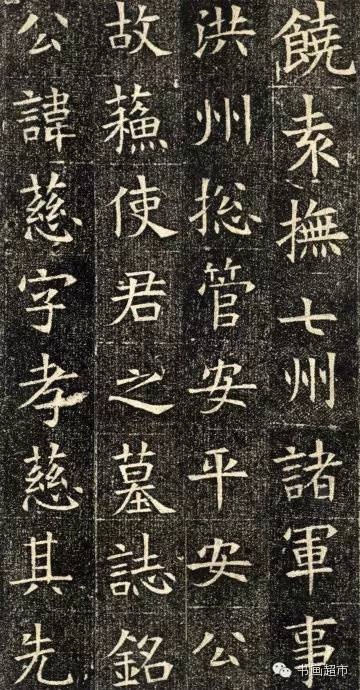 饒袁撫七州諸軍事
洪州捴管安平安公
故蘓使君之墓誌銘
公諱慈字孝慈其先
书画超市